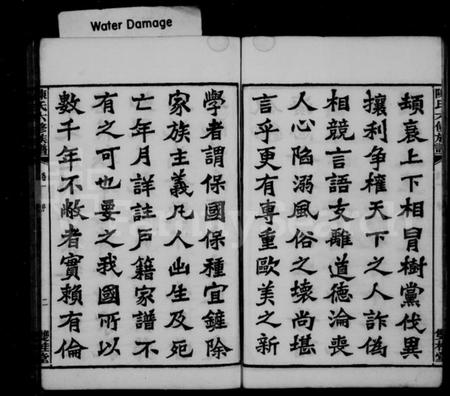 Water Damage
頹衰上下相冒樹黨伐異
攘利爭權天下之人詐偽
相競言語支離道德淪喪
人心陷溺風俗之壞尚堪
言乎更有專重歐美之新
學者謂保國保種宜鏟除
家族主義凡人出生及死
亡年月詳註戶籍家譜不
有之可也要之我國所以
數千年不敝者實賴有倫
陳氏六修族譜
二
雙桂堂